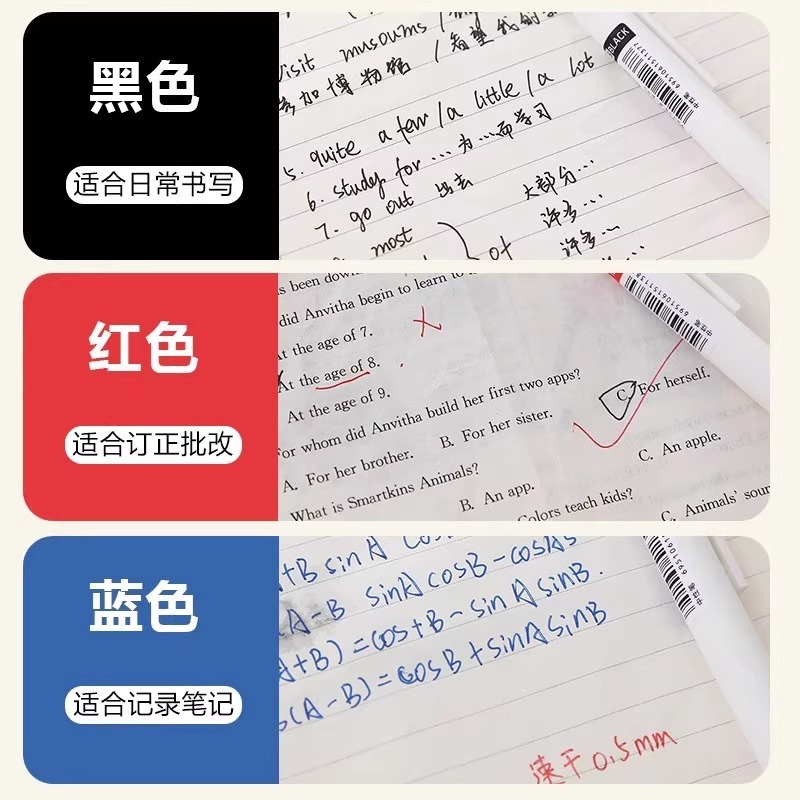 黑色
适合日常书写
visit musoums /
参加博物馆 / 希望我们
5. quite a few / a little / a lot
6. study for … 为…而学习
7. go out 出去
most
of
大部分…
许多…
许多…
BLACK
6951061511377
中性笔
红色
适合订正批改
s been down
did Anvitha begin to learn to
At the age of 7.
At the age of 8.
At the age of 9.
For whom did Anvitha build her first two apps?
A. For her brother. B. For her sister. C. For herself.
What is Smartkins Animals?
B. An app. C. An apple.
Colors teach kids?
C. Animals' soun
中性笔
蓝色
适合记录笔记
+B sinA cos
A-B sinA cosB-cosAs
A+B)=cos+B-sinAsinB.
s(A-B)=cosB+sinAsinB
中性笔
速干0.5mm